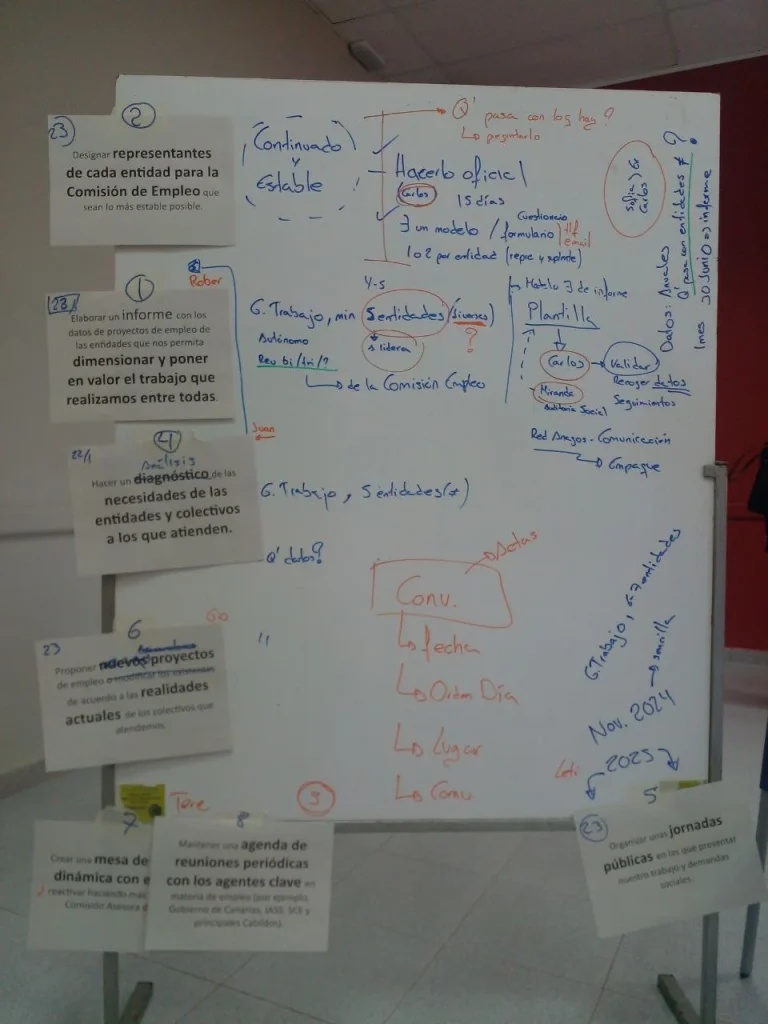 23
2
Designar representantes
de cada entidad para la
Comisión de Empleo que
sean lo más estable posible.
Continuado
y
Estable
Q' pasa con los hay?
↳ preguntarlo
Hacerlo oficial
Carlos
15 días
Cuestionario
∃ un modelo / formulario
tlf
email
1 o 2 por entidad (repre y suplente)
Sofía) G
Carlos
Datos: Anuales
Q' pasa con entidades ≠ ?
1 mes 30 Junio => informe
Rober
1
Elaborar un informe con los
datos de proyectos de empleo de
las entidades que nos permita
dimensionar y poner
en valor el trabajo que
realizamos entre todas.
4-5
G. Trabajo, min 5 entidades (diversas)
Autónomo
1 lidera
?
Reu bi/tri/?
↳ de la Comisión Empleo
Modelo ∃ de informe
Plantilla
Carlos → Validar
Recoger datos
Seguimientos
Miranda
Auditoría Social
Red Anagos - Comunicación
→ Empaque
Juan
22/1
4
Análisis
Hacer un diagnóstico de las
necesidades de las
entidades y colectivos
a los que atienden.
G. Trabajo, 5 entidades (≠)
Q' datos?
Conv.
→ Actas
↳ fecha
↳ Orden Día
↳ Lugar
↳ Comu
Go
23
6
Proponer nuevos proyectos
de empleo o modificar los existentes
de acuerdo a las realidades
actuales de los colectivos que
atendemos.
"
G. Trabajo, 6-7 entidades
→ semilla
Nov. 2024
2025
Leti
Tere
9
7
Crear una mesa de
dinámica con e
reactivar haciendo mas
Comisión Asesora d
8
Mantener una agenda de
reuniones periódicas
con los agentes clave en
materia de empleo (por ejemplo,
Gobierno de Canarias, IASS, SCE y
principales Cabildos).
5
23
Organizar unas jornadas
públicas en las que presentar
nuestro trabajo y demandas
sociales.